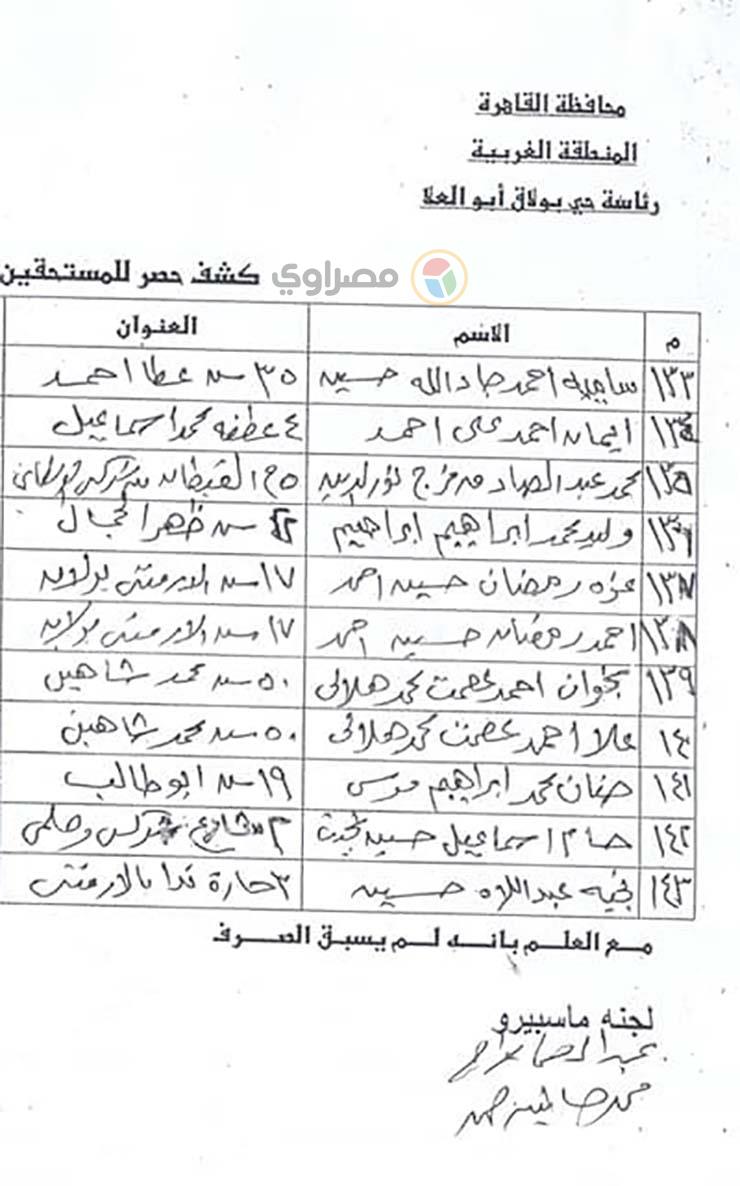 محافظة القاهرة
المنطقة الغربية
رئاسة حي بولاق أبو العلا
كشف حصر للمستحقين
مصراوي
م الاسم العنوان
١٣٣ ساميه احمد جاد الله حسين ٣٥ ش عطا احمد
١٣٤ ايمان احمد على احمد ٤ عطفه محمد اسماعيل
١٣٥ محمد عبد الصادق فرج نور الدين ٥ ح القبطان
١٣٦ وليد محمد ابراهيم ابراهيم ش ظهر الجمال
١٣٧ عزه رمضان حسين احمد ١٧ ش الارمنتى بولاق
١٣٨ احمد رمضان حسين احمد ١٧ ش الارمنتى بولاق
١٣٩ احمد عصمت محمد هلالى ٥٠ ش محمد شاهين
١٤٠ علا احمد عصمت محمد هلالى ٥٠ ش محمد شاهين
١٤١ حنان محمد ابراهيم موسى ١٩ ش ابو طالب
١٤٢ حسام اسماعيل حسين بخيت ٣ شارع شركس وحلمى
١٤٣ عبد اللاه حسين ٣ حارة ندا بالارمنتى
مع العلم بانه لم يسبق الصرف
لجنه ماسبيرو